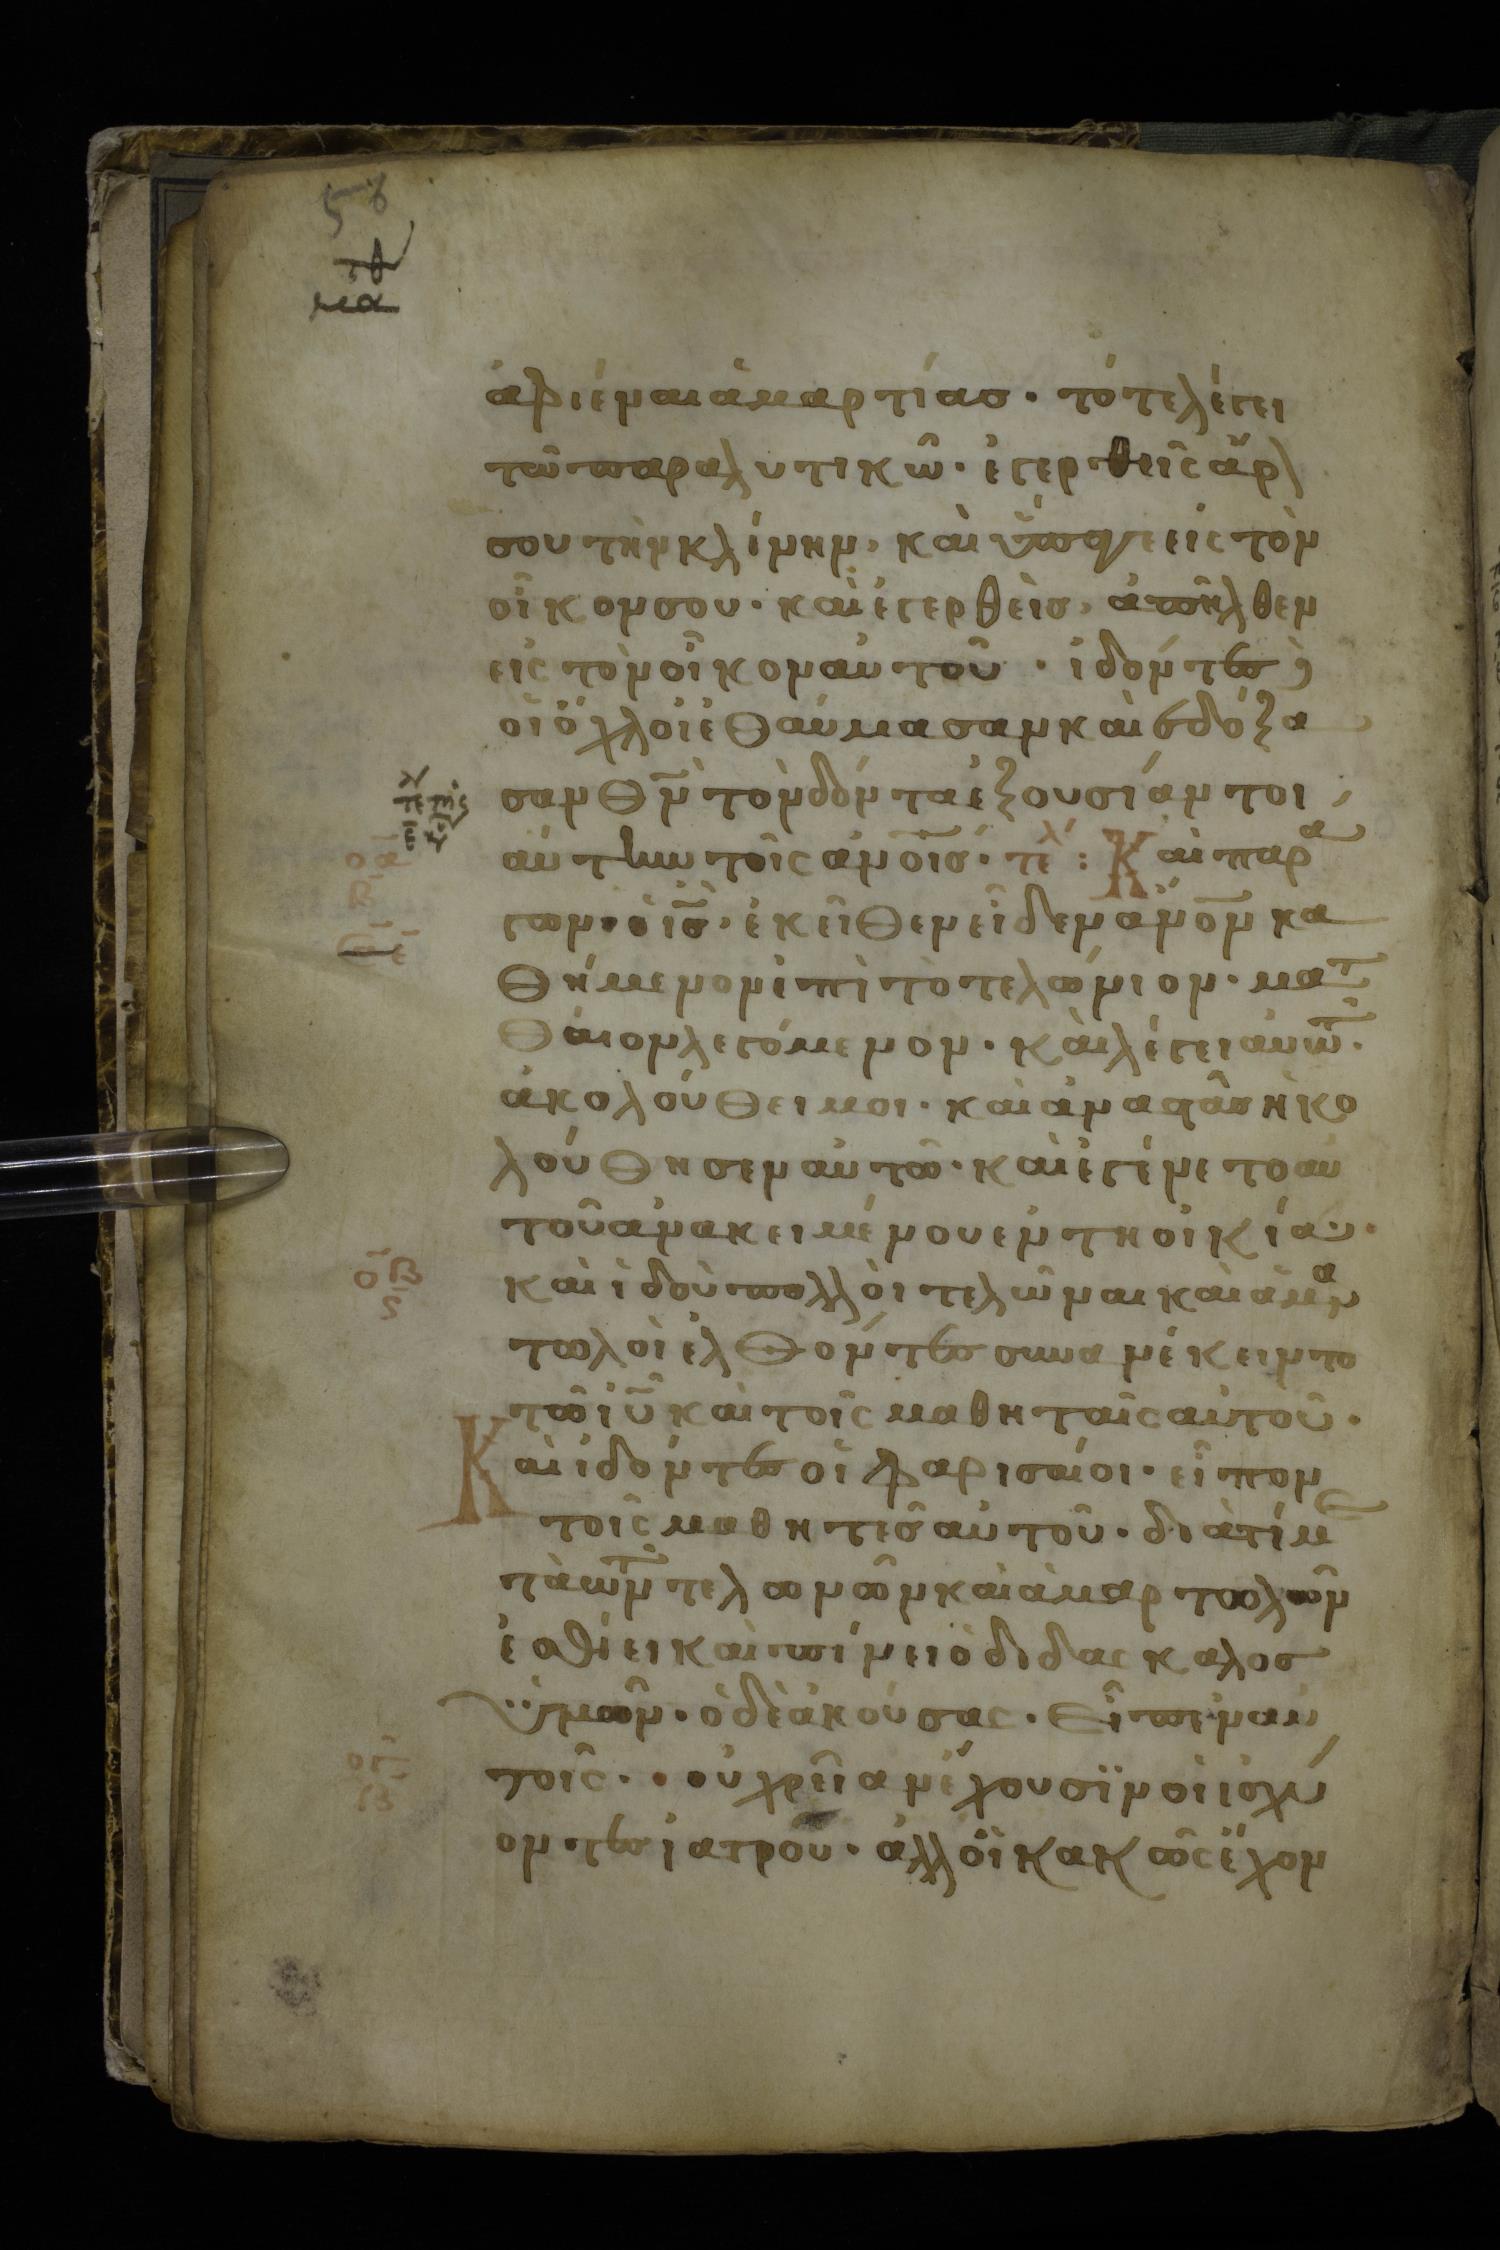 ἀφιέναι ἁμαρτίας· τότε λέγει
τῶ παραλυτικῶ· ἐγερθεῖς ἄρ
σου τὴν κλίνην, καὶ ὕπαγε εἰς τὸν
οἶκον σου· καὶ ἐγερθεὶς, ἀπῆλθεν
εἰς τὸν οἶκον αὐτοῦ· ἰδόντες
οἱ ὄχλοι ἐθαύμασαν καὶ ἐδόξα
σαν θν̅ τὸν δόντα ἐξουσίαν τοι
αύτην τοῖς ἀνοις̅· τε λ : Καὶ παρα
γων· ὁ ις̅· ἐκεῖθεν εἶδεν ἄνον̅ κα
θήμενον ἐπὶ τὸ τελώνιον· ματ
θαίον λεγόμενον· καὶ λέγει αυτω·
ἀκολούθει μοι· καὶ ἀναστὰς ἠκο
λούθησεν αὐτῶ· καὶ ἐγένετο αὐ
τοῦ ἀνακειμένου ἐν τη οἰκία·
καὶ ἰδοὺ πολλοὶ τελῶναι καὶ ἁμαρ
τωλοὶ ἐλθόντες συνανέκειντο
τῶ ιυ̅ καὶ τοῖς μαθηταῖς αὐτοῦ·
Καὶ ἰδόντες οἱ φαρισαίοι· εἶπον
τοῖς μαθητες αὐτοῦ· διατί με
τὰ των τελωνῶν καὶ ἁμαρτωλῶν
ἐσθίει καὶ πίνει ὁ διδάσκαλος
ὑμῶν· ὁ δὲ ἀκούσας· εἶπεν αὐ
τοῖς· οὐ χρεῖαν ἔχουσϊν οἱ ἰσχύ
οντες ἰατροῦ· ἀλλοἱ κακῶς ἔχον
58
μα
οα
β
ε
οβ
ς
ογ
β